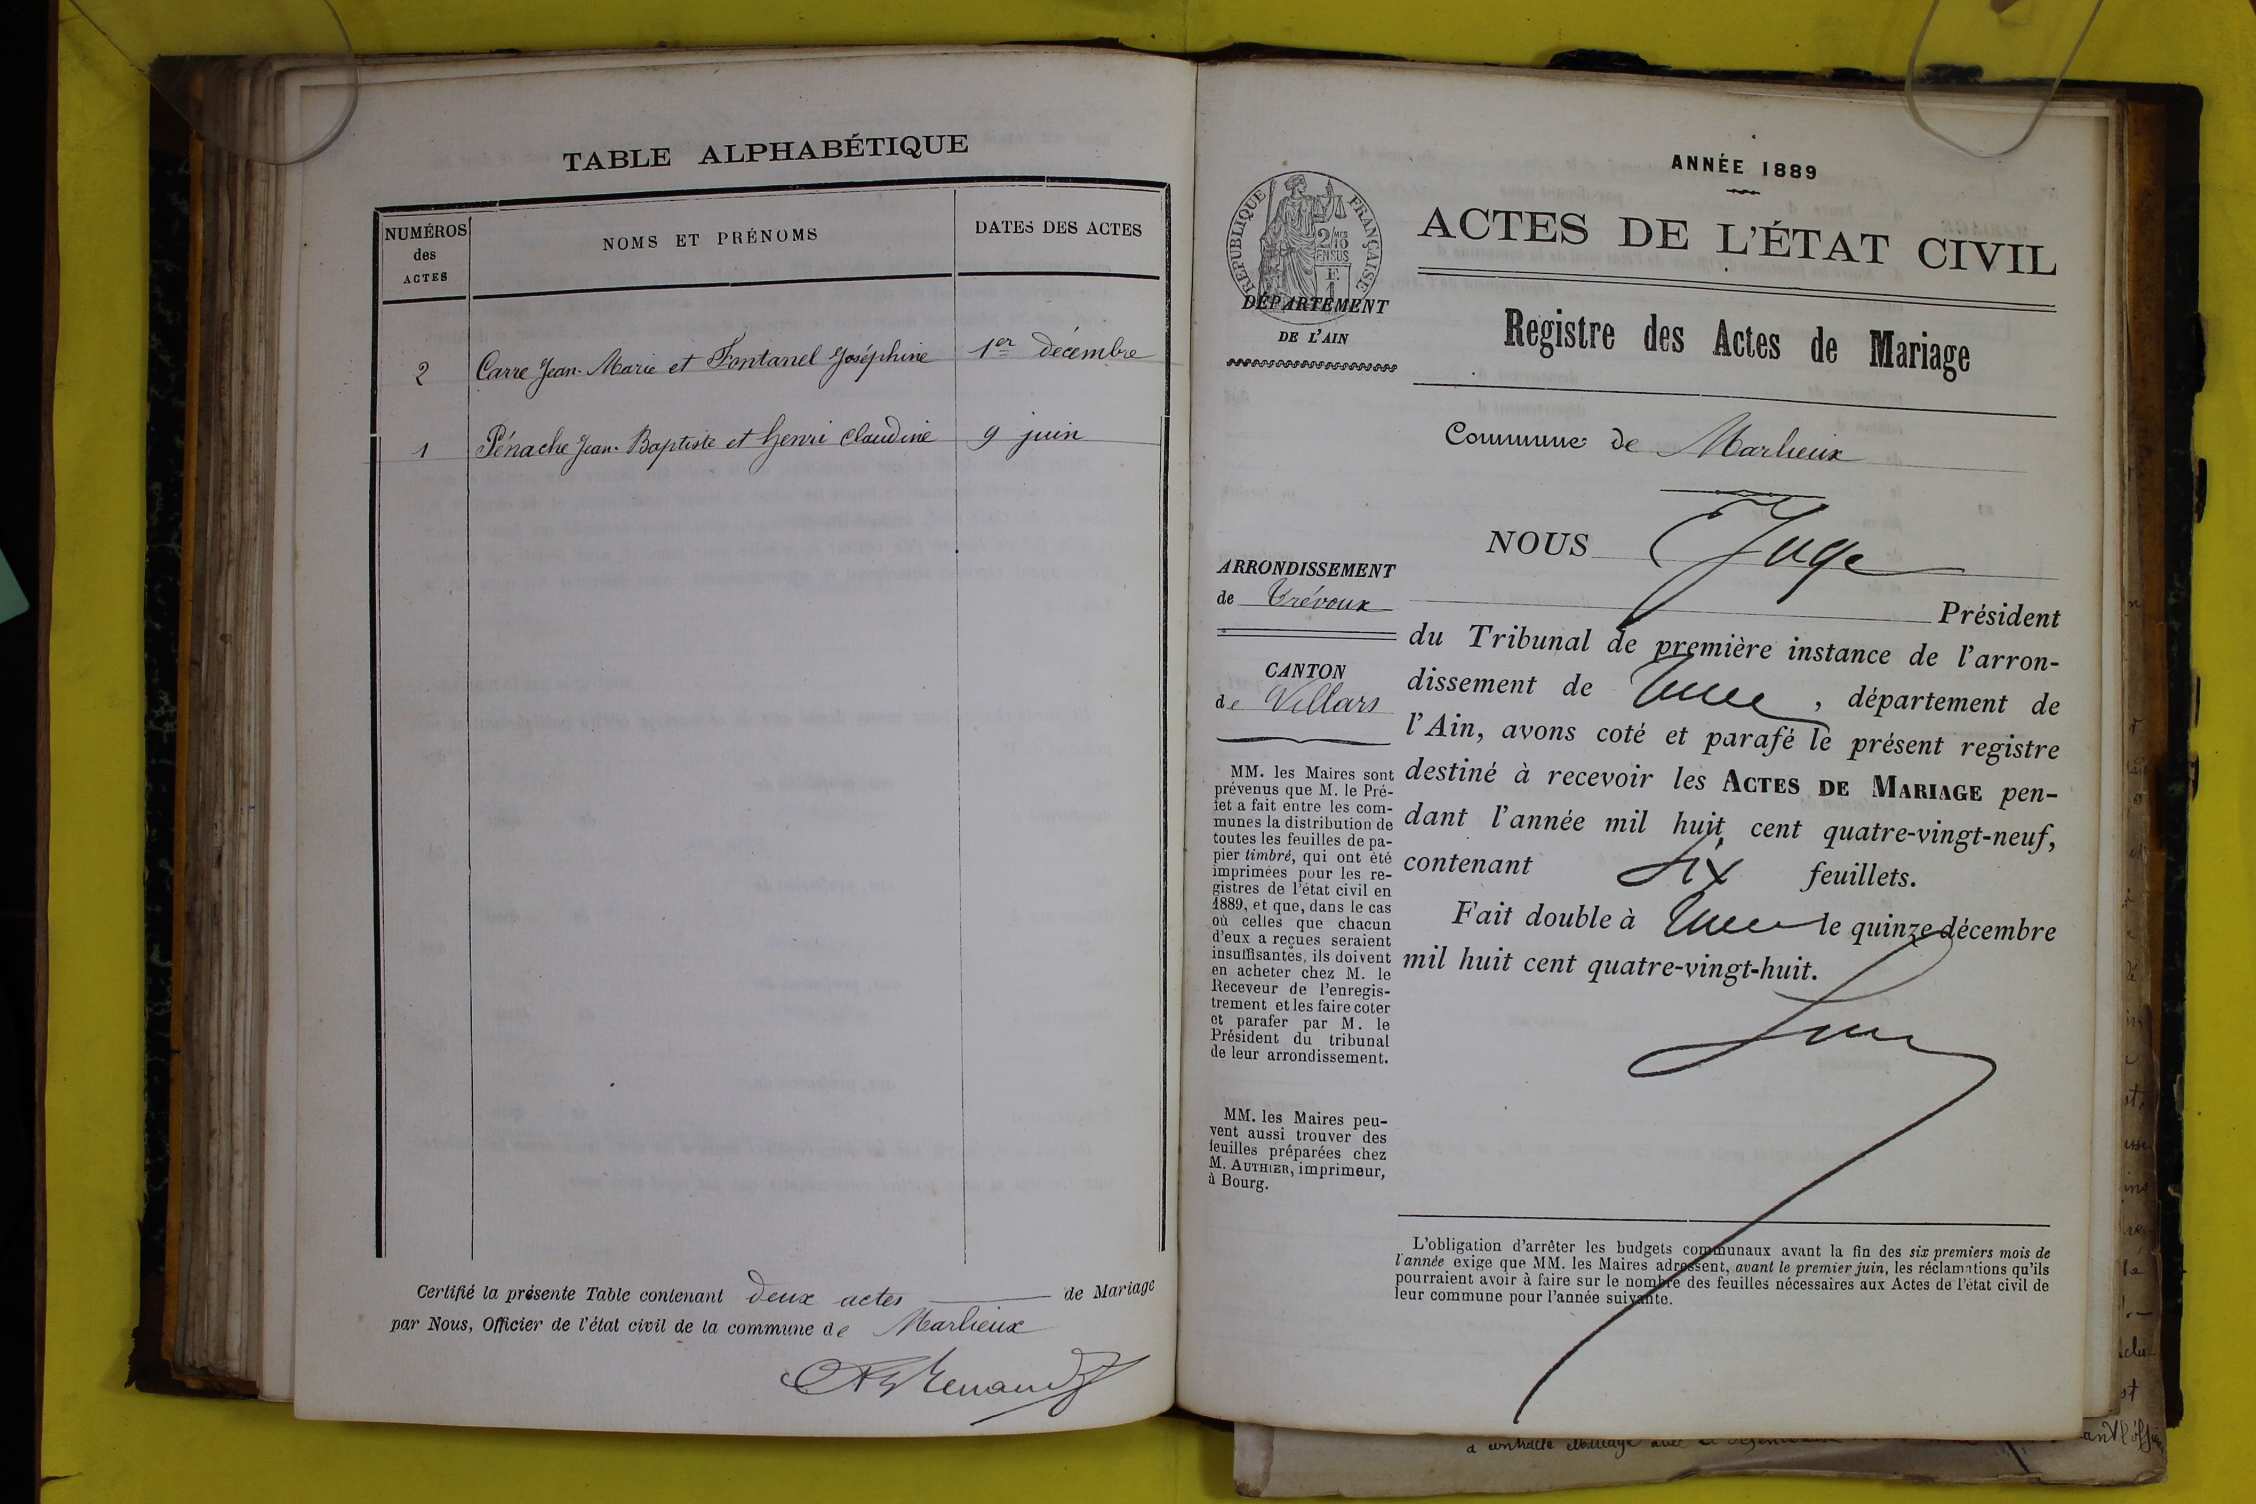 TABLE ALPHABÉTIQUE
NUMÉROS
des
ACTES
NOMS ET PRÉNOMS
DATES DES ACTES
2 Carre Jean-Marie et Fontanel Joséphine 1er décembre
1 Pénache Jean-Baptiste et Henri Claudine 9 juin
Certifié la présente Table contenant deux actes de Mariage
par Nous, Officier de l'état civil de la commune de Marlieux
ANNÉE 1889
RÉPUBLIQUE FRANÇAISE
ACTES DE L'ÉTAT CIVIL
DÉPARTEMENT
DE L'AIN
Registre des Actes de Mariage
Commune de Marlieux
ARRONDISSEMENT
de Trévoux
CANTON
de Villars
MM. les Maires sont
prévenus que M. le Pré-
fet a fait entre les com-
munes la distribution de
toutes les feuilles de pa-
pier timbré, qui ont été
imprimées pour les re-
gistres de l'état civil en
1889, et que, dans le cas
où celles que chacun
d'eux a reçues seraient
insuffisantes, ils doivent
en acheter chez M. le
Receveur de l'enregis-
trement et les faire coter
et parafer par M. le
Président du tribunal
de leur arrondissement.
MM. les Maires peu-
vent aussi trouver des
feuilles préparées chez
M. AUTHIER, imprimeur,
à Bourg.
NOUS Juge
Président
du Tribunal de première instance de l'arron-
dissement de , département de
l'Ain, avons coté et parafé le présent registre
destiné à recevoir les ACTES DE MARIAGE pen-
dant l'année mil huit cent quatre-vingt-neuf,
contenant six feuillets.
Fait double à le quinze décembre
mil huit cent quatre-vingt-huit.
L'obligation d'arrêter les budgets communaux avant la fin des six premiers mois de
l'année exige que MM. les Maires adressent, avant le premier juin, les réclamations qu'ils
pourraient avoir à faire sur le nombre des feuilles nécessaires aux Actes de l'état civil de
leur commune pour l'année suivante.